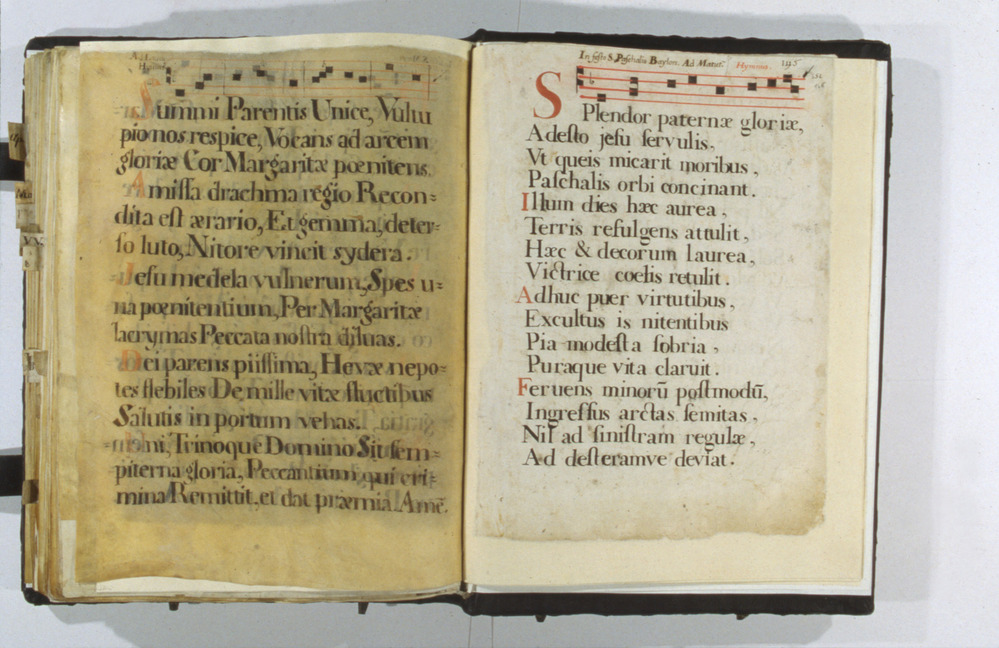 Summi Parentis Unice, Vultu
pio nos respice, Vocans ad arcem
gloriæ Cor Margaritæ pœnitens.
Amissa drachma regio Recon=
dita est ærario, Et gemma, deter=
so luto, Nitore vincit sydera.
Jesu medela vulnerum, Spes u=
na pœnitentium, Per Margaritæ
lacrymas Peccata nostra diluas.
Dei parens piissima, Hevæ nepo=
tes flebiles De mille vitæ fluctibus
Salutis in portum vehas.
Uni, Trinoque Domino Sit sem=
piterna gloria, Peccantium qui cri=
mina Remittit, et dat præmia. Amē.
In festo S. Paschalis Baylon. Ad Matut. Hymnus
115
Splendor paternæ gloriæ,
Adesto jesu servulis,
Vt queis micarit moribus,
Paschalis orbi concinant.
Illum dies hæc aurea,
Terris refulgens attulit,
Hæc & decorum laurea,
Victrice coelis retulit.
Adhuc puer virtutibus,
Excultus is nitentibus
Pia modesta sobria,
Puraque vita claruit.
Feruens minorū postmodū,
Ingressus arctas semitas,
Nil ad sinistram regulæ,
Ad desteramve deviat.